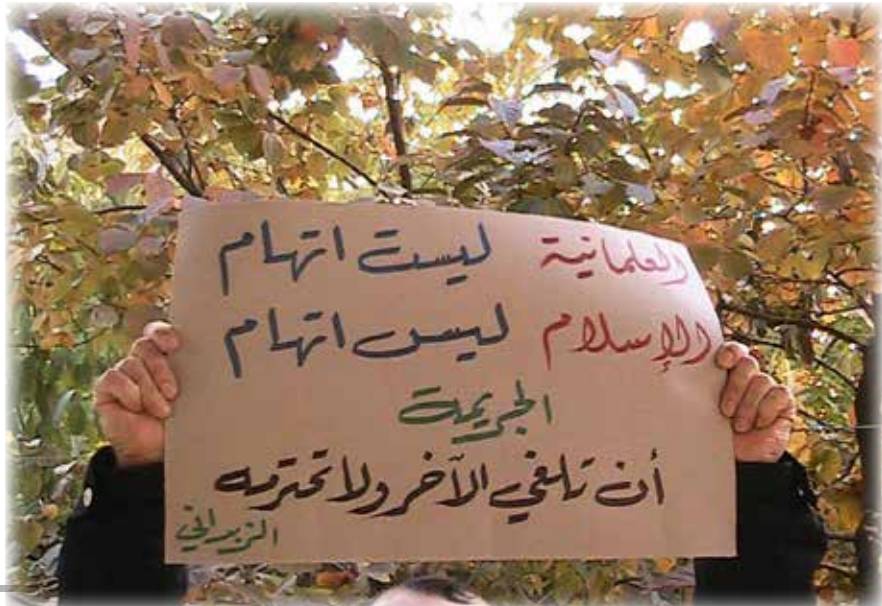 العلمانية ليست اتهام
الإسلام ليس اتهام
الجريمة
أن تلغي الآخر ولا تحترمه
الزبداني